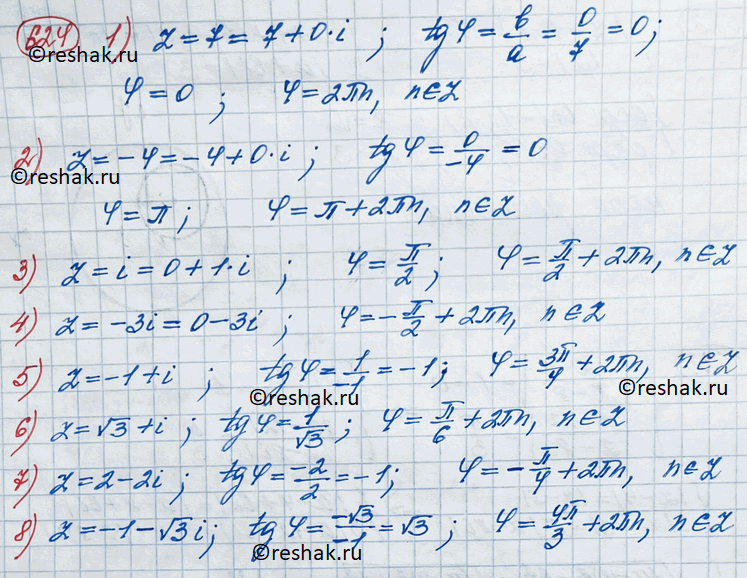 624 1) z = 7 = 7 + 0·i ; tg φ = b/a = 0/7 = 0;
φ = 0 ; φ = 2πn, n ∈ Z
2) z = -4 = -4 + 0·i ; tg φ = 0/-4 = 0
©reshak.ru
φ = π ; φ = π + 2πn, n ∈ Z
3) z = i = 0 + 1·i ; φ = π/2 ; φ = π/2 + 2πn, n ∈ Z
4) z = -3i = 0 - 3i ; φ = -π/2 + 2πn, n ∈ Z
5) z = -1 + i ; tg φ = 1/-1 = -1; φ = 3π/4 + 2πn, n ∈ Z
©reshak.ru
©reshak.ru
6) z = √3 + i ; tg φ = 1/√3 ; φ = π/6 + 2πn, n ∈ Z
7) z = 2 - 2i ; tg φ = -2/2 = -1; φ = -π/4 + 2πn, n ∈ Z
8) z = -1 - √3 i; tg φ = -√3/-1 = √3 ; φ = 4π/3 + 2πn, n ∈ Z
©reshak.ru